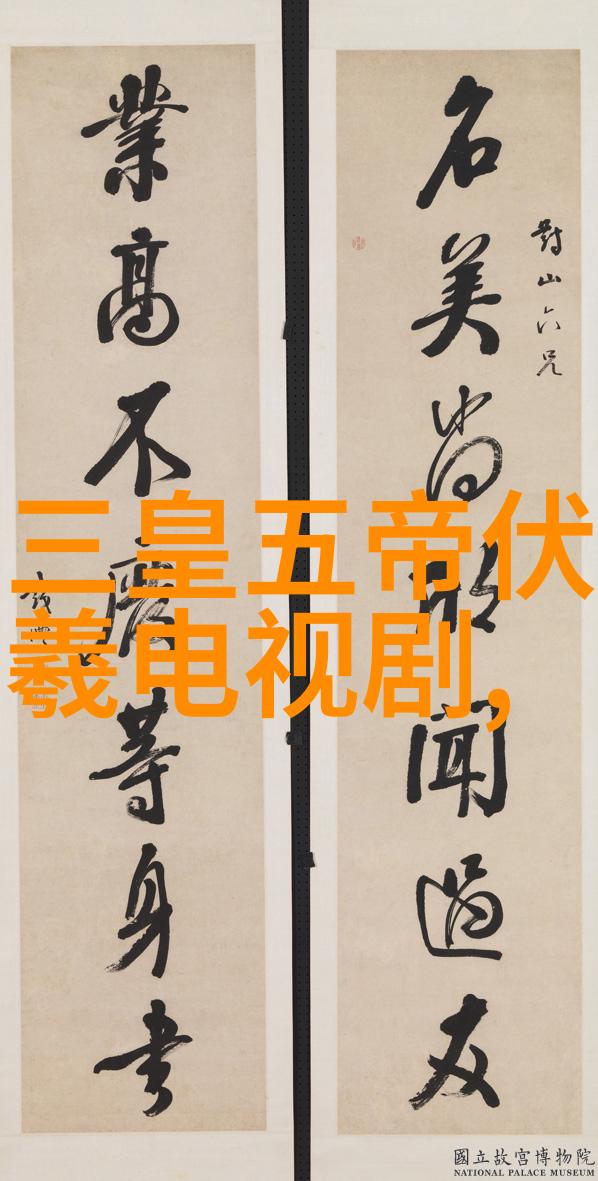 對山六兄
名美尚欣聞過友
業高不廢等身書
三皇五帝伏
羲电视剧,
國立故宮博物院
NATIONAL PALACE MUSEUM